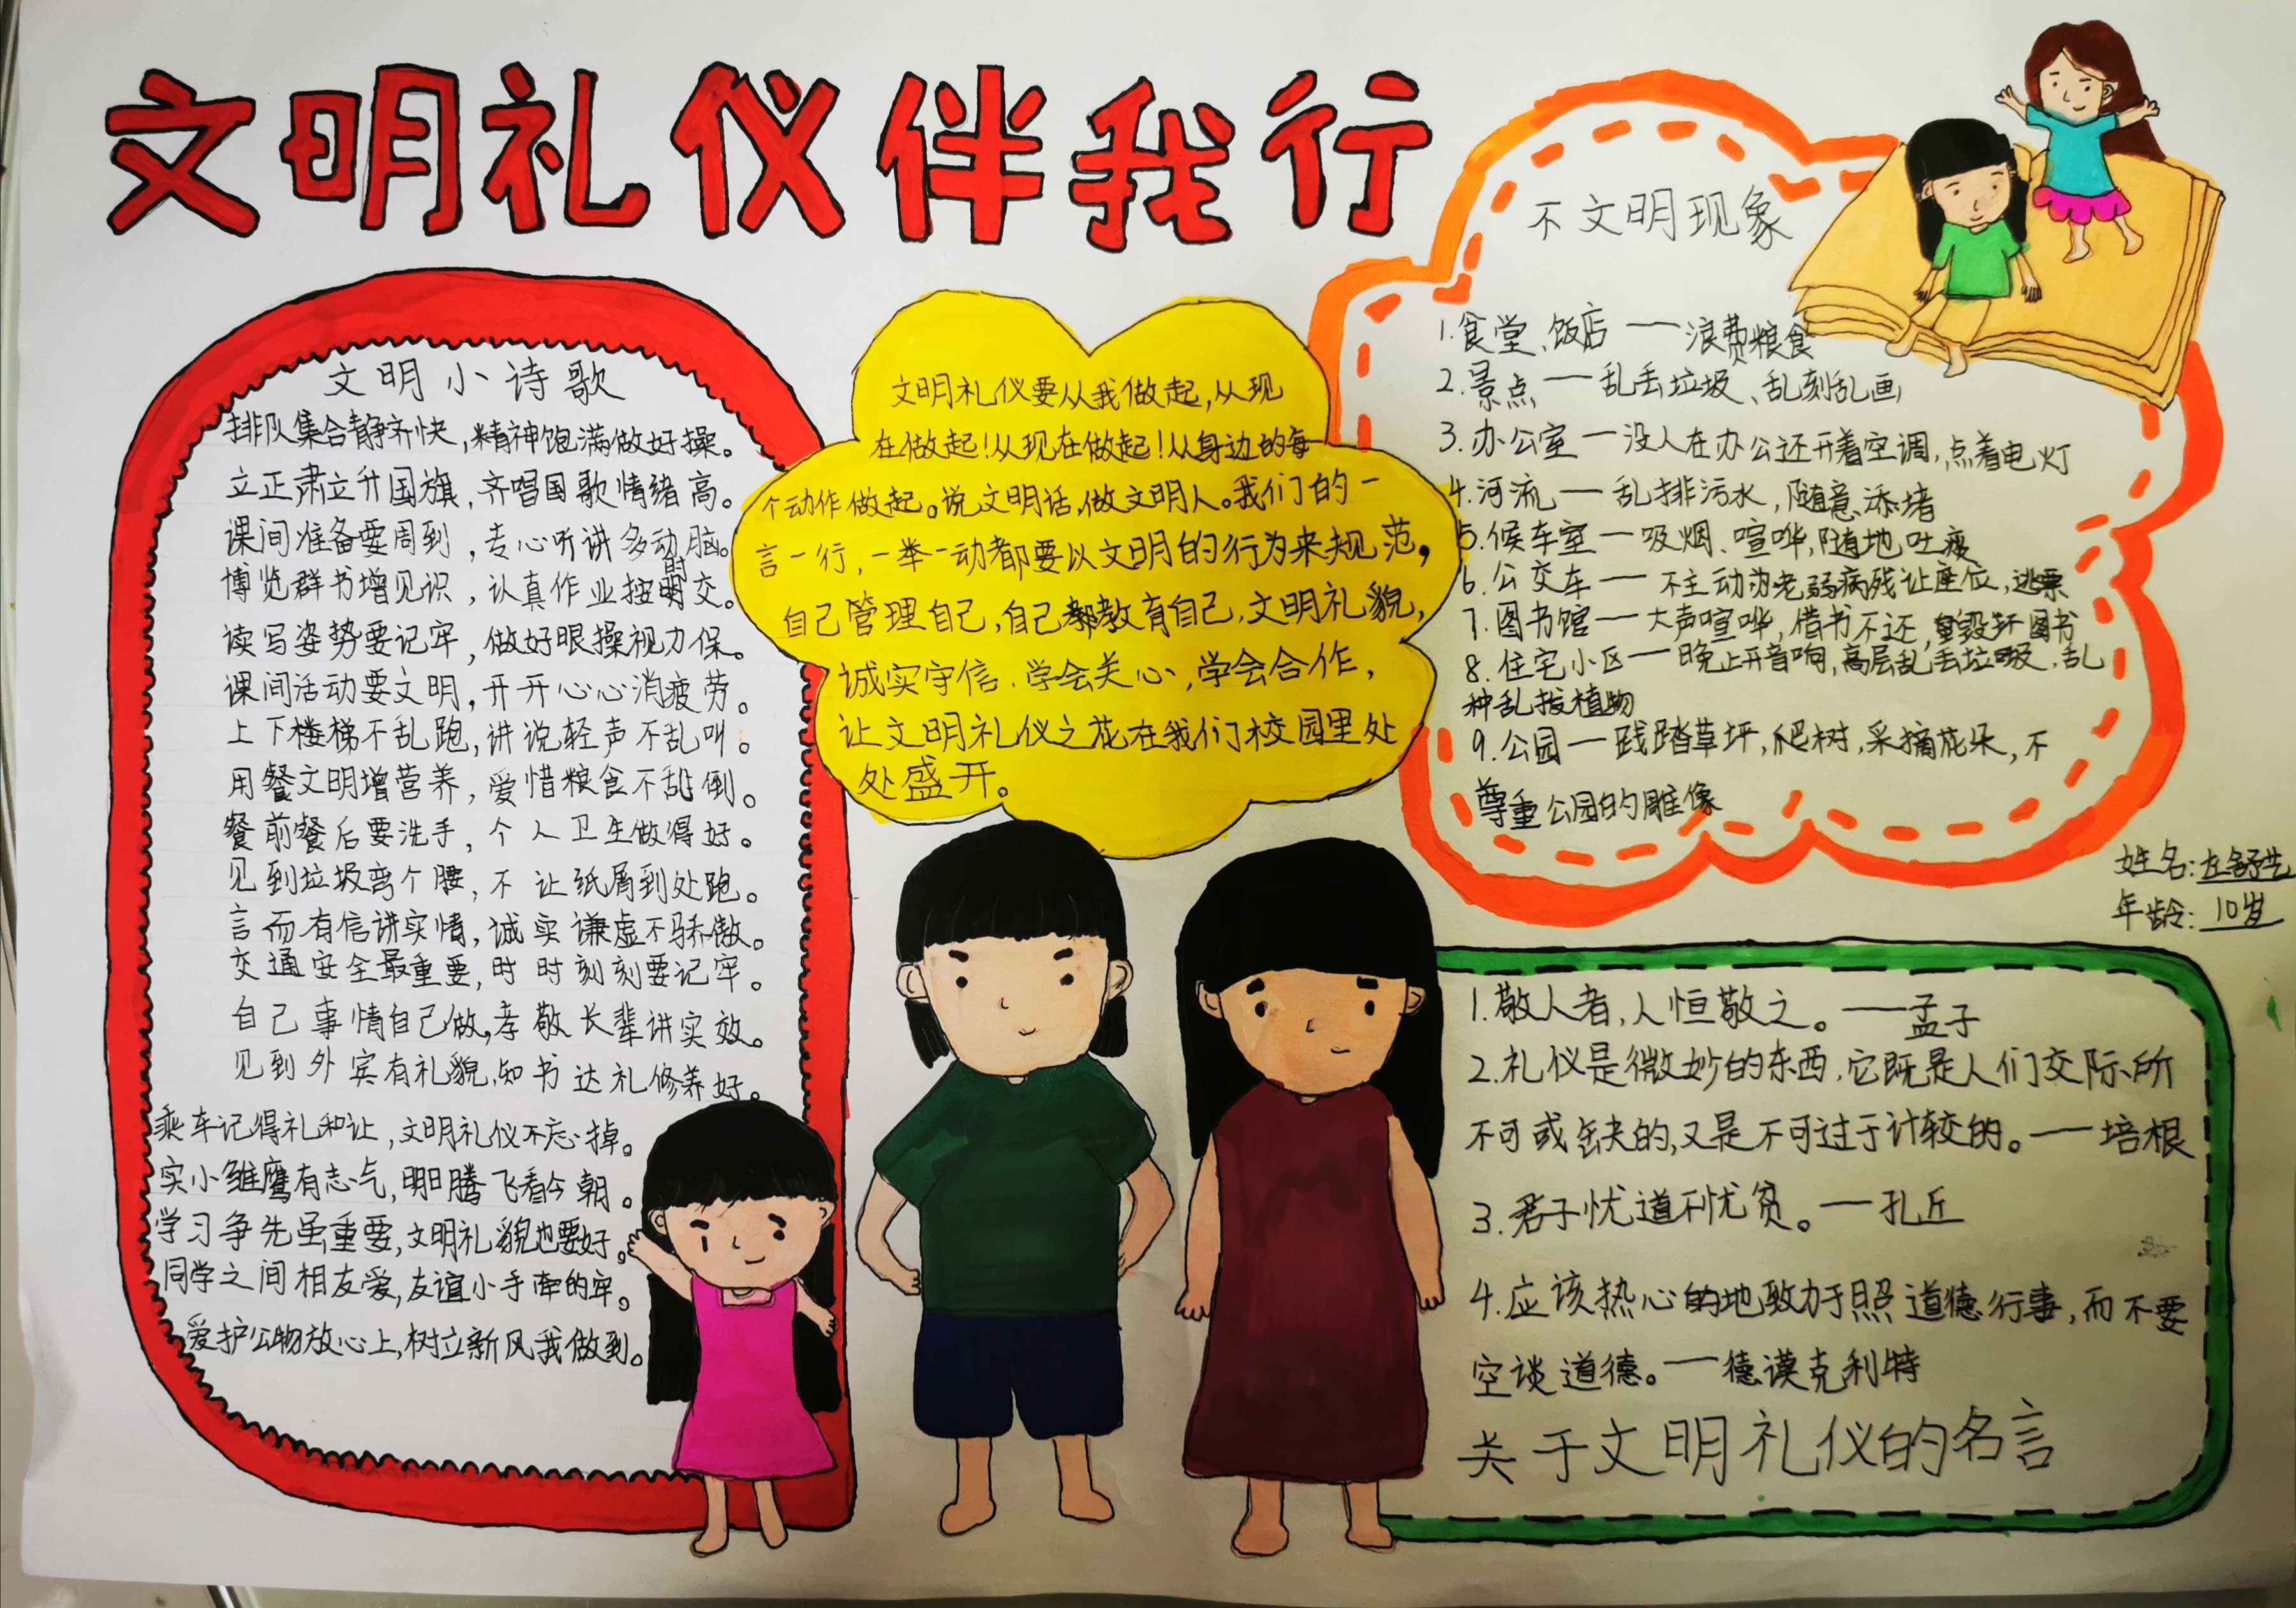 文明礼仪伴我行
文明小诗歌
排队集合静齐快,精神饱满做好操。
立正肃立升国旗,齐唱国歌情绪高。
课间准备要周到,专心听讲多动脑。
博览群书增见识,认真作业按时交。
读写姿势要记牢,做好眼操视力保。
课间活动要文明,开开心心消疲劳。
上下楼梯不乱跑,讲说轻声不乱叫。
用餐文明增营养,爱惜粮食不乱倒。
餐前餐后要洗手,个人卫生做得好。
见到垃圾弯个腰,不让纸屑到处跑。
言而有信讲实情,诚实谦虚不骄傲。
交通安全最重要,时时刻刻要记牢。
自己事情自己做,孝敬长辈讲实效。
见到外宾有礼貌,知书达礼修养好。
乘车记得礼和让,文明礼仪不忘掉。
实小雏鹰有志气,明日腾飞看今朝。
学习争先虽重要,文明礼貌也要好。
同学之间相友爱,友谊小手牵的牢。
爱护公物放心上,树立新风我做到。
文明礼仪要从我做起,从现
在做起!从现在做起!从身边的每一
个动作做起。说文明话,做文明人。我们的一
言一行,一举一动都要以文明的行为来规范,
自己管理自己,自己教育自己,文明礼貌,
诚实守信.学会关心,学会合作,
让文明礼仪之花在我们校园里处
处盛开。
不文明现象
1.食堂、饭店——浪费粮食
2.景点——乱丢垃圾、乱刻乱画
3.办公室—没人在办公还开着空调,点着电灯
4.河流——乱排污水,随意添堵
5.候车室—吸烟、喧哗,随地吐痰
6.公交车——不主动为老弱病残让座位,逃票
7.图书馆——大声喧哗,借书不还,毁坏图书
8.住宅小区——晚上开音响,高层乱丢垃圾,乱
种乱拔植物
9.公园—践踏草坪,爬树,采摘花朵,不
尊重公园的雕像
姓名:左舒艺
年龄:10岁
1.敬人者,人恒敬之。——孟子
2.礼仪是微妙的东西,它既是人们交际所
不可或缺的,又是不可过于计较的。——培根
3.君子忧道不忧贫。——孔丘
4.应该热心的地致力于照道德行事,而不要
空谈道德。——德谟克利特
关于文明礼仪的名言